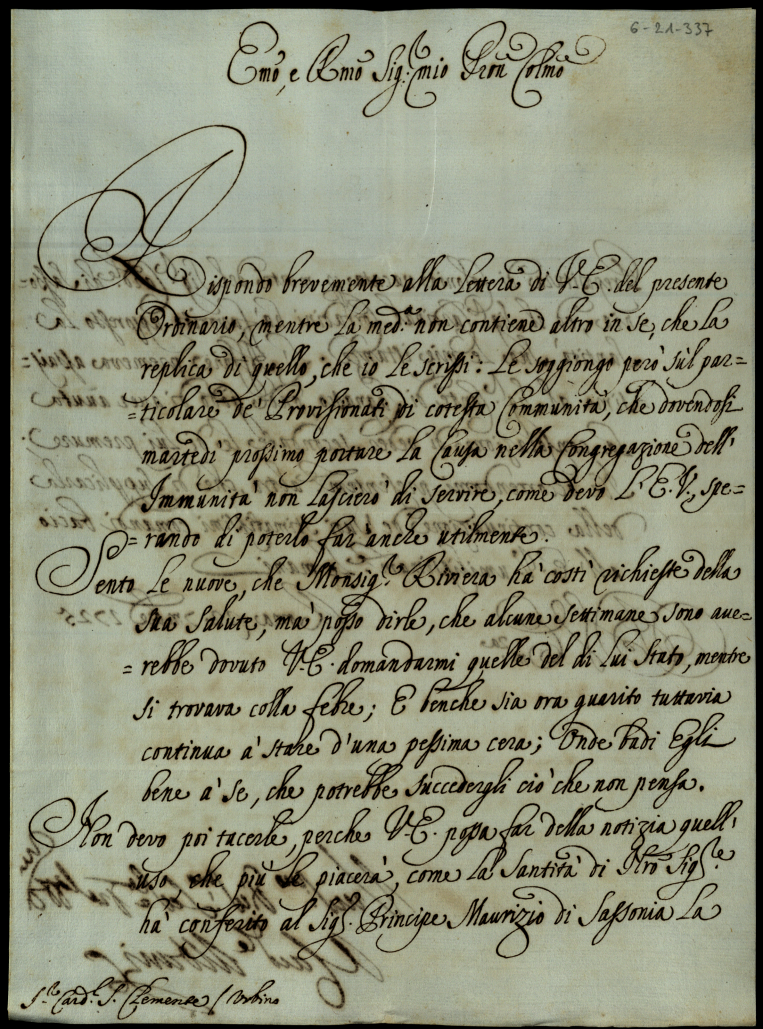 6-21-337
Emo, e Rmo Sig.r mio Pron Colmo
Rispondo brevemente alla Lettera di V.E. del presente
Ordinario, mentre La med.a non contiene altro in se, che La
replica di quello, che io Le scrissi: Le soggiongo però sùl par=
=ticolare de' Provisionati di cotesta Communità, che dovendosi
martedì prossimo portare La Causa nella Congregazione dell'
Immunità non Lascierò di servire, come devo L'E.V., spe=
=rando di poterlo far anche utilmente.
Sento Le nuove, che Monsig.r Riviera hà costì richieste della
sua salute, mà posso dirle, che alcune settimane sono ave=
=rebbe dovuto V.E. domandarmi quelle del di Lui Stato, mentre
si trovava colla febre; E benche sia ora guarito tuttavia
continua à stare d'una pessima cera; Onde badi Egli
bene à se, che potrebbe succedergli ciò che non pensa.
Non devo poi tacerle, perche V.E. possa far della notizia quell'
uso, che più le piacerà, come La Santità di Nro Sig.re
hà conferito al Sig.r Principe Maurizio di Sassonia La
S.r Card.l S. Clemente / Urbino